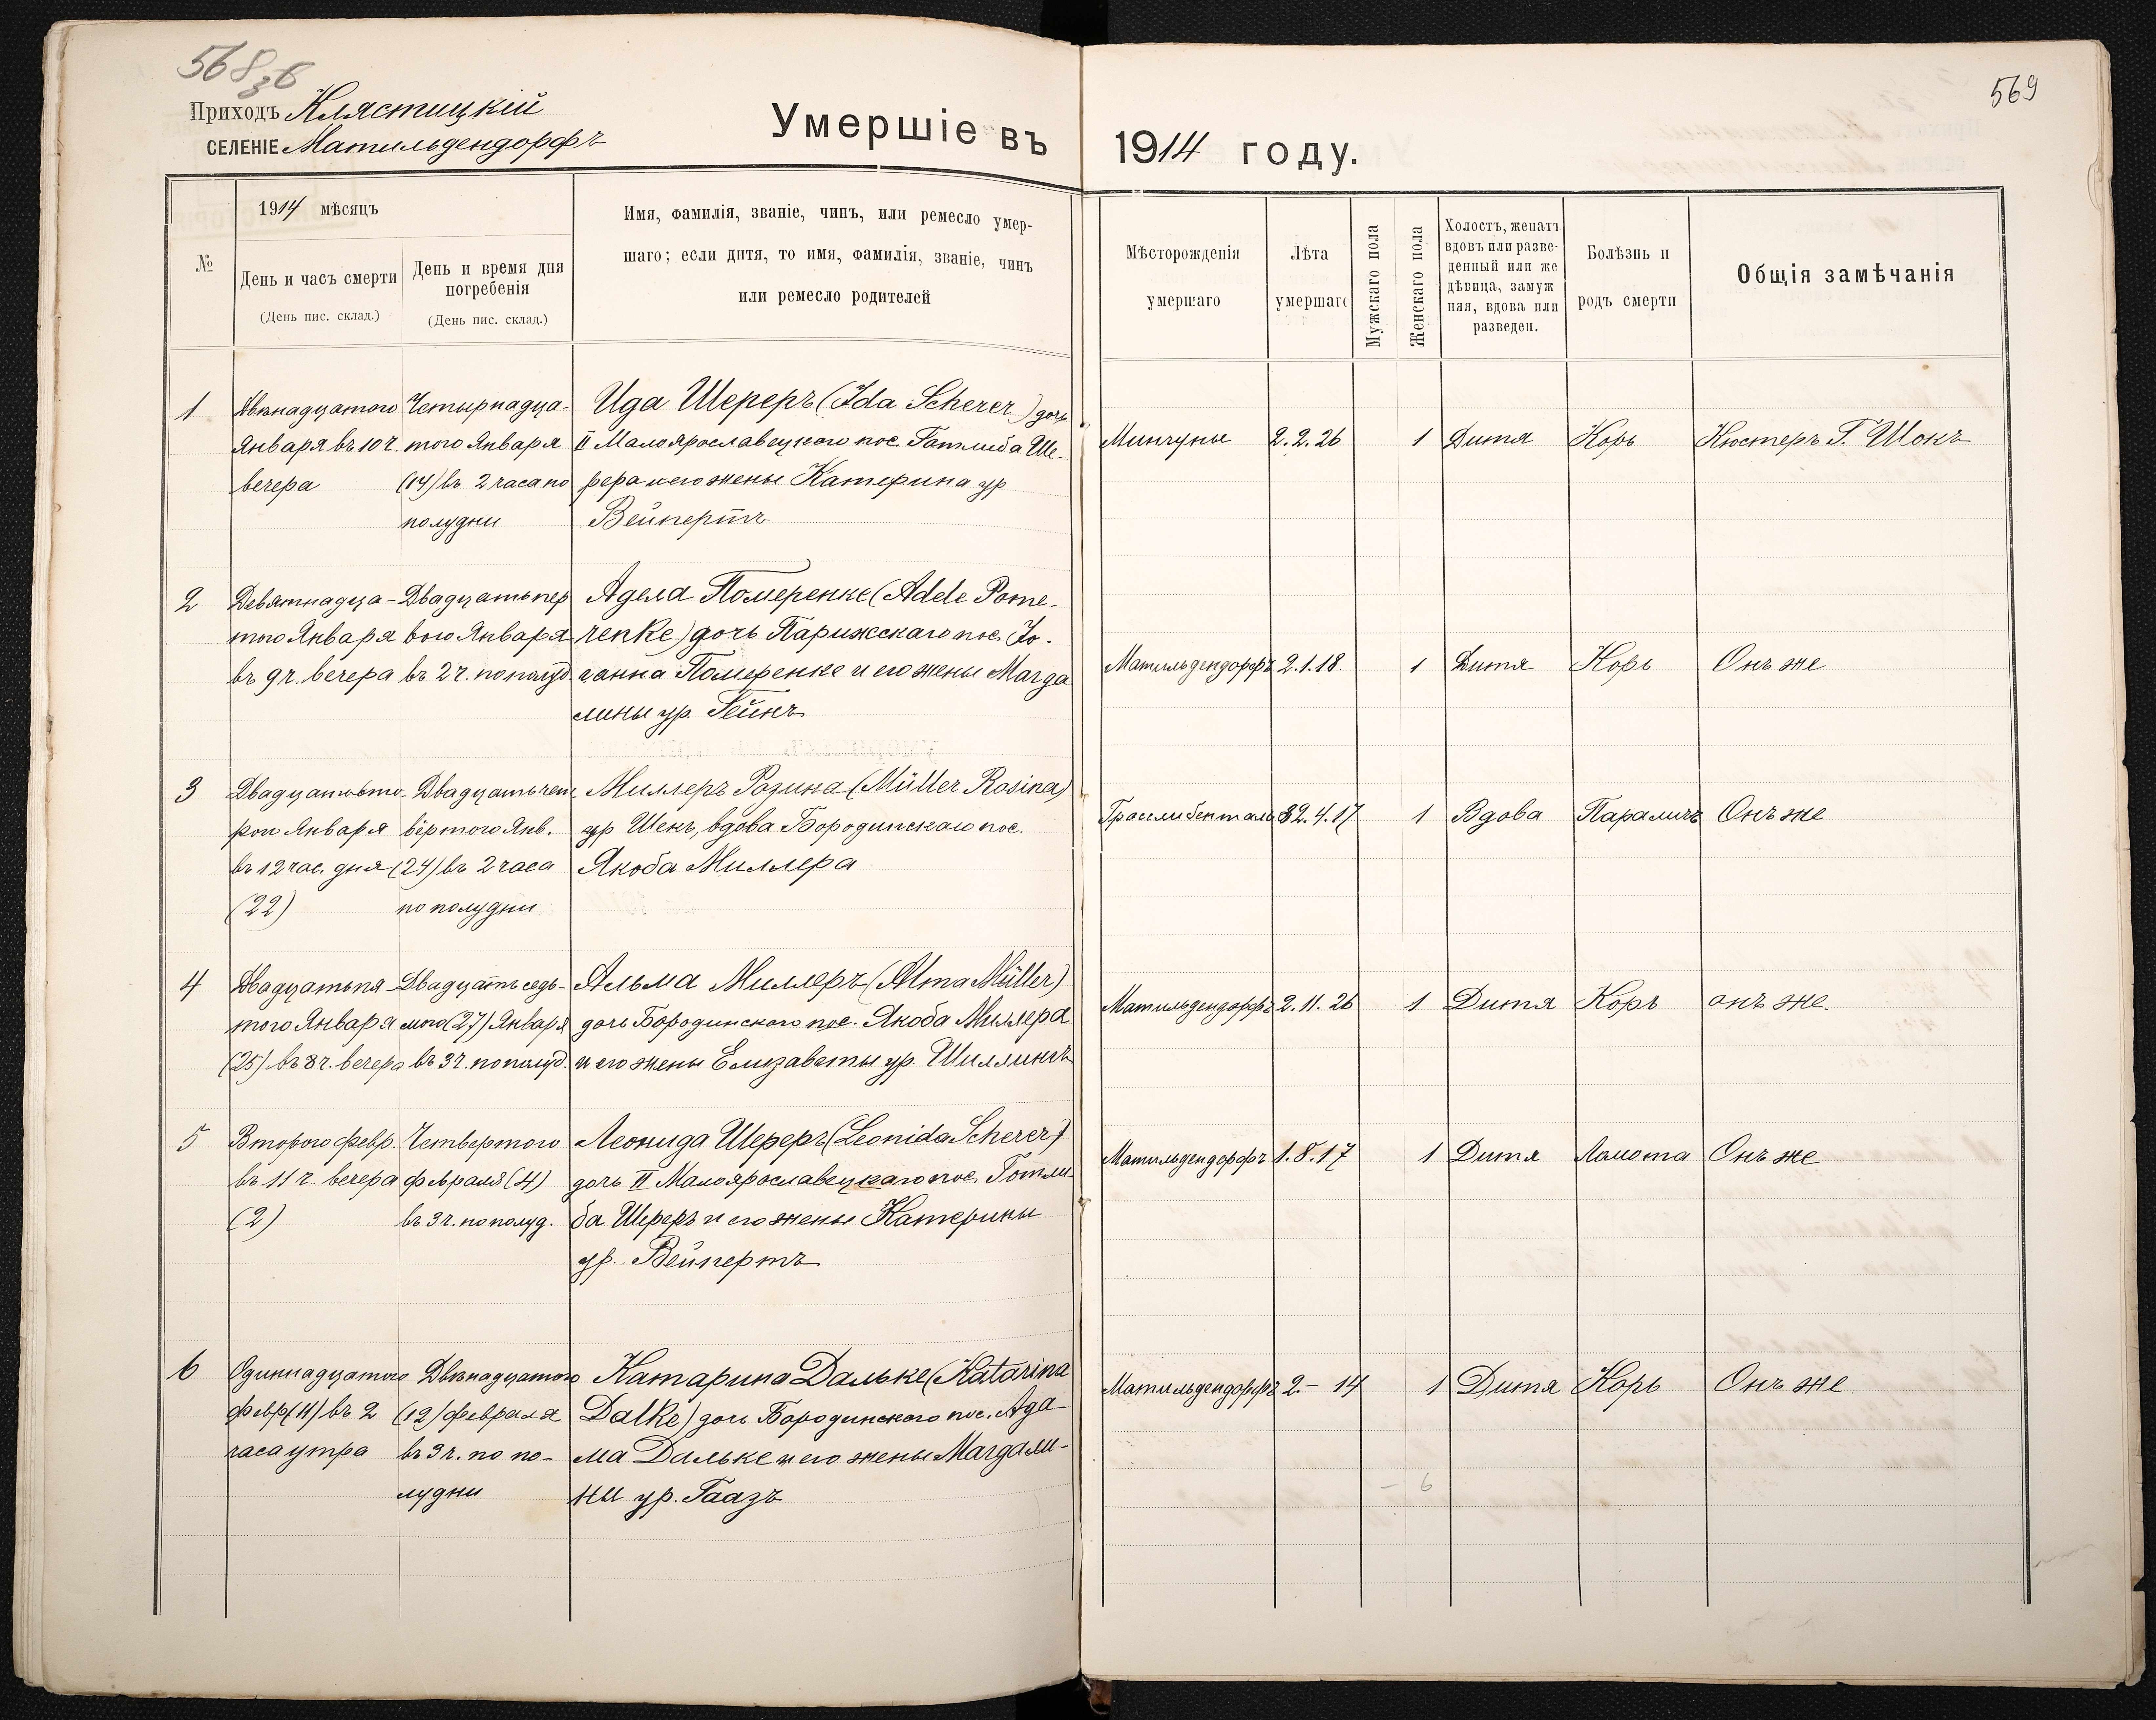 568
569
Приходъ Клястицкій
СЕЛЕНІЕ Матильдендорфъ
Умершіе въ 1914 году.
№
1914 мѣсяцъ
День и часъ смерти
(День пис. склад.)
День и время дня
погребенія
(День пис. склад.)
Имя, фамилія, званіе, чинъ, или ремесло умер-
шаго; если дитя, то имя, фамилія, званіе, чинъ
или ремесло родителей
Мѣсторожденія
умершаго
Лѣта
умершаго
Мужскаго пола
Женскаго пола
Холостъ, женатъ
вдовъ или разве-
денный или же
дѣвица, замуж
няя, вдова или
разведен.
Болѣзнь и
родъ смерти
Общія замѣчанія
1
Двѣнадцатого
Января въ 10 ч.
вечера
Четырнадца-
того Января
(14) въ 2 часа по
полудни
Ида Шереръ (Ida Scherer) дочь
II Малоярославецкаго пос. Готлиба Ше-
рера и его жены Катерина ур
Вейпертъ
Минчуны
2.2.26
1
Дитя
Корь
Кюстеръ Г. Шокъ
2
Девятнадца-
того Января
въ 9 ч. вечера
Двадцать пер
вого Января
въ 2 ч. по полуд
Адела Померенке (Adele Pome-
renke) дочь Парижскаго пос. Іо-
ганна Померенке и его жены Магда
лины ур. Гейнъ
Матильдендорфъ
2.1.18.
1
Дитя
Корь
Онъ же
3
Двадцать вто-
рого Января
въ 12 час. дня
(22)
Двадцать чет
вёртого Янв.
(24) въ 2 часа
по полудни
Миллеръ Розина (Müller Rosina)
ур Шекъ, вдова Бородинскаго пос.
Якоба Миллера
Гросслибенталь
82.4.17
1
Вдова
Параличъ
Онъ же
4
Двадцать пя-
того Января
(25) въ 8 ч. вечера
Двадцать седь-
мого (27) Января
въ 3 ч. по полуд.
Альма Миллеръ (Alma Müller)
дочь Бородинскаго пос. Якоба Миллера
и его жены Елизаветы ур. Шиллингъ
Матильдендорфъ
2.11.26
1
Дитя
Корь
онъ же.
5
Второго февр.
въ 11 ч. вечера
(2)
Четвертого
февраля (4)
въ 3 ч. по полуд.
Леонида Шереръ (Leonida Scherer)
дочь II Малоярославецкаго пос. Готли-
ба Шереръ и его жены Катерины
ур. Вейпертъ
Матильдендорфъ
1.8.17
1
Дитя
Ломота
Онъ же
6
Одиннадцатого
февр (11) въ 2
часа утра
Двѣнадцатого
(12) февраля
въ 3 ч. по по-
лудни
Катарина Дальке (Katarina
Dalke) дочь Бородинскаго пос. Ада-
ма Дальке и его жены Магдали-
ны ур. Гаазъ
Матильдендорфъ
2.- 14
1
Дитя
Корь
Онъ же.
– 6